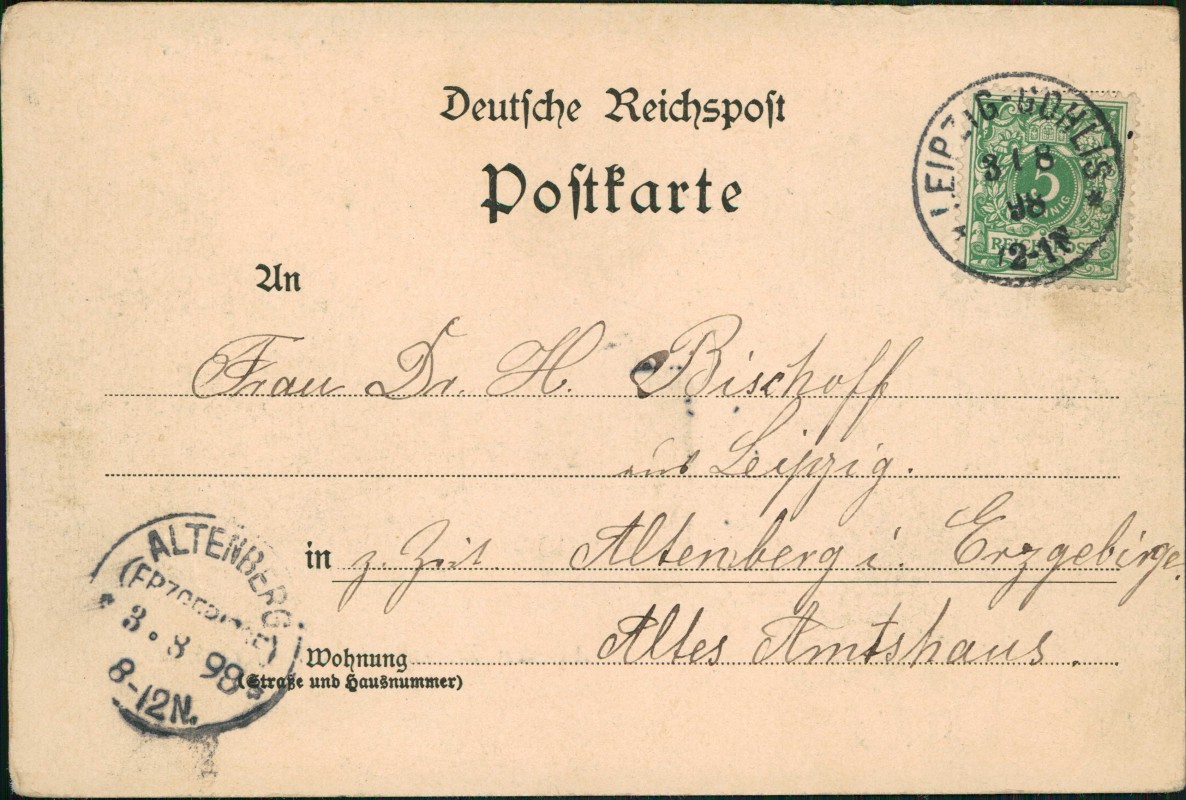 Deutsche Reichspost
Postkarte
LEIPZIG-GOHLIS
3 1 8
98
12-1N
5
PFENNIG
REICHSPOST
An
Frau Dr. H. Bischoff
aus Leipzig.
in z. Zeit. Altenberg i. Erzgebirge.
Wohnung Altes Amtshaus.
(Straße und Hausnummer)
ALTENBERG
(ERZGEBIRGE)
3.8 98
8-12N.